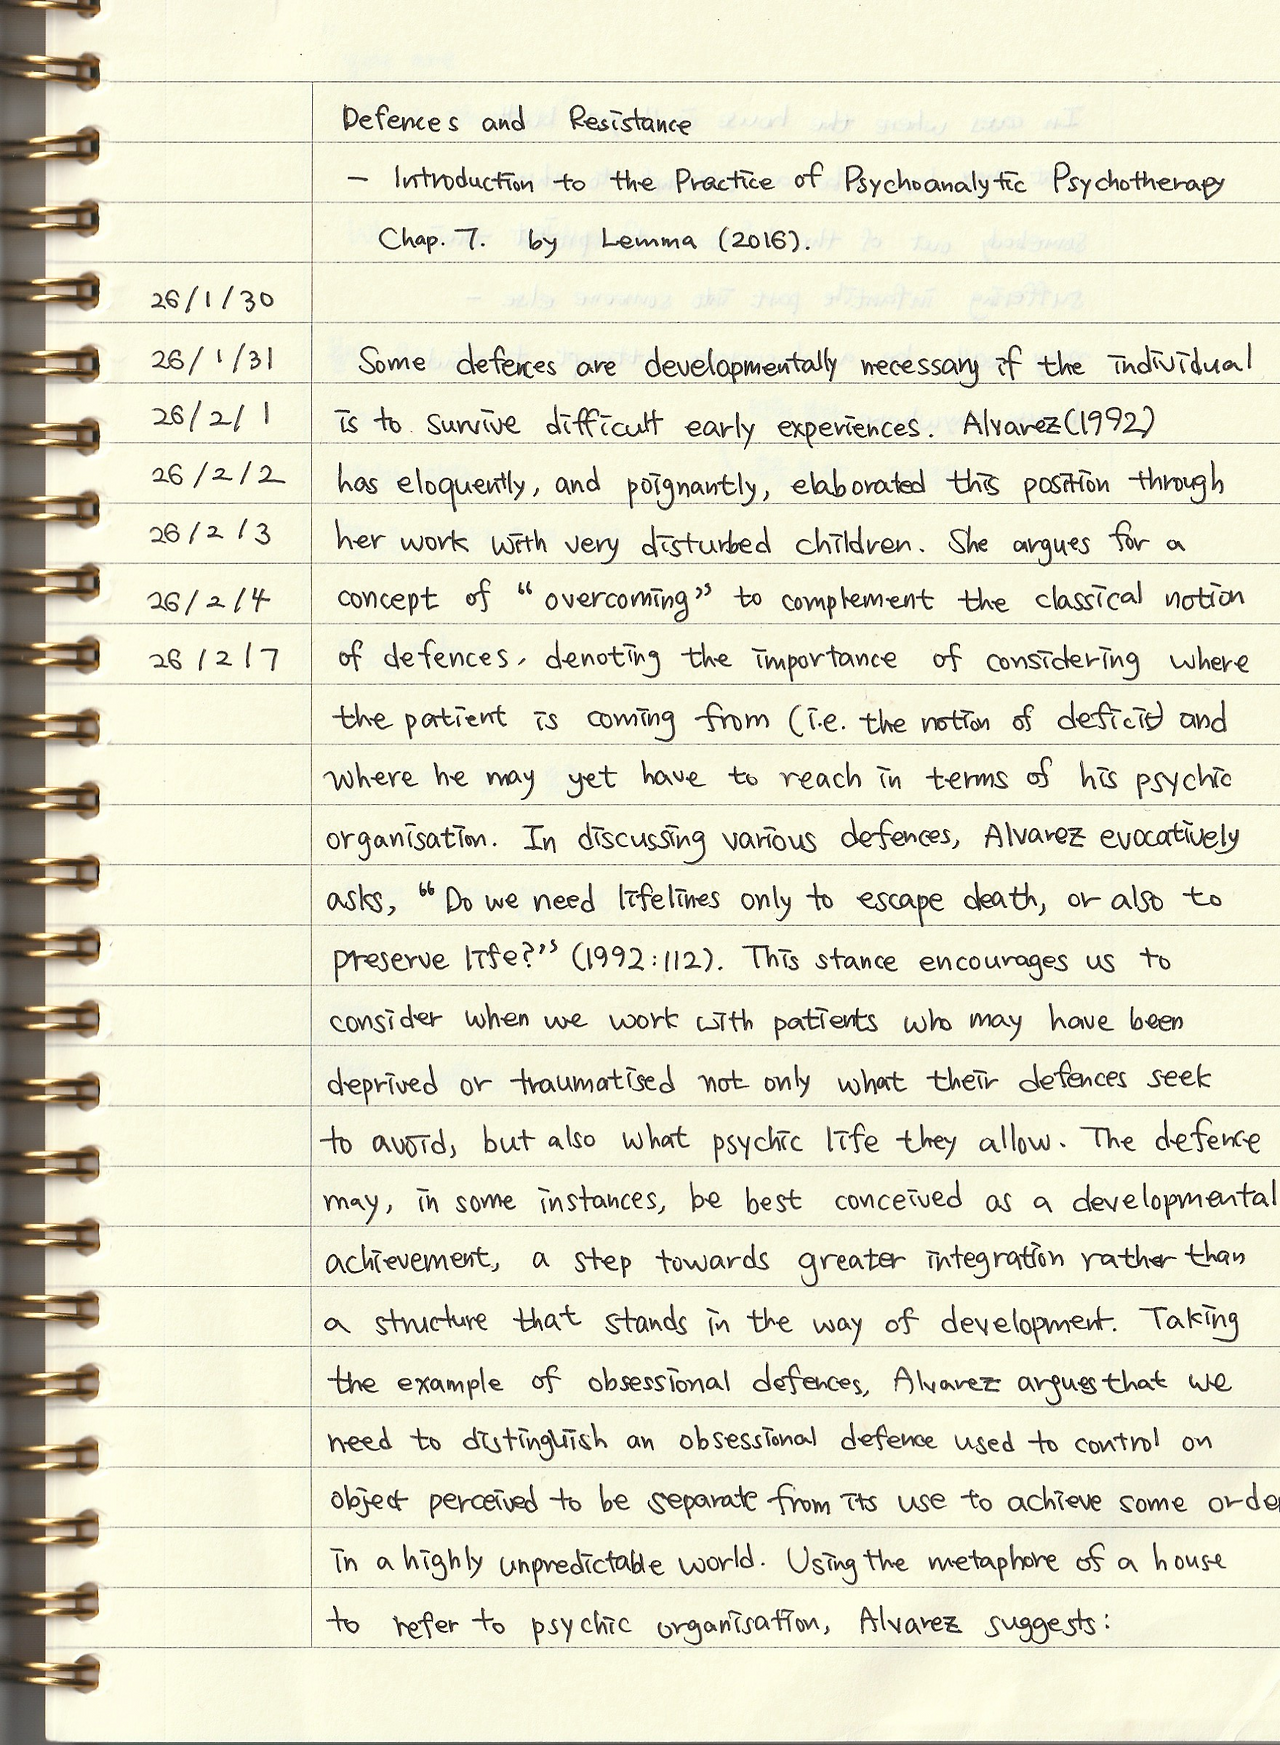 Defences and Resistance
- Introduction to the Practice of Psychoanalytic Psychotherapy
Chap. 7. by Lemma (2016).
26/1/30
26/1/31 Some defences are developmentally necessary if the individual
26/2/1 is to survive difficult early experiences. Alvarez (1992)
26/2/2 has eloquently, and poignantly, elaborated this position through
26/2/3 her work with very disturbed children. She argues for a
26/2/4 concept of "overcoming" to complement the classical notion
26/2/7 of defences, denoting the importance of considering where
the patient is coming from (i.e. the notion of deficit) and
where he may yet have to reach in terms of his psychic
organisation. In discussing various defences, Alvarez evocatively
asks, "Do we need lifelines only to escape death, or also to
preserve life?" (1992:112). This stance encourages us to
consider when we work with patients who may have been
deprived or traumatised not only what their defences seek
to avoid, but also what psychic life they allow. The defence
may, in some instances, be best conceived as a developmental
achievement, a step towards greater integration rather than
a structure that stands in the way of development. Taking
the example of obsessional defences, Alvarez argues that we
need to distinguish an obsessional defence used to control an
object perceived to be separate from its use to achieve some order
in a highly unpredictable world. Using the metaphore of a house
to refer to psychic organisation, Alvarez suggests: